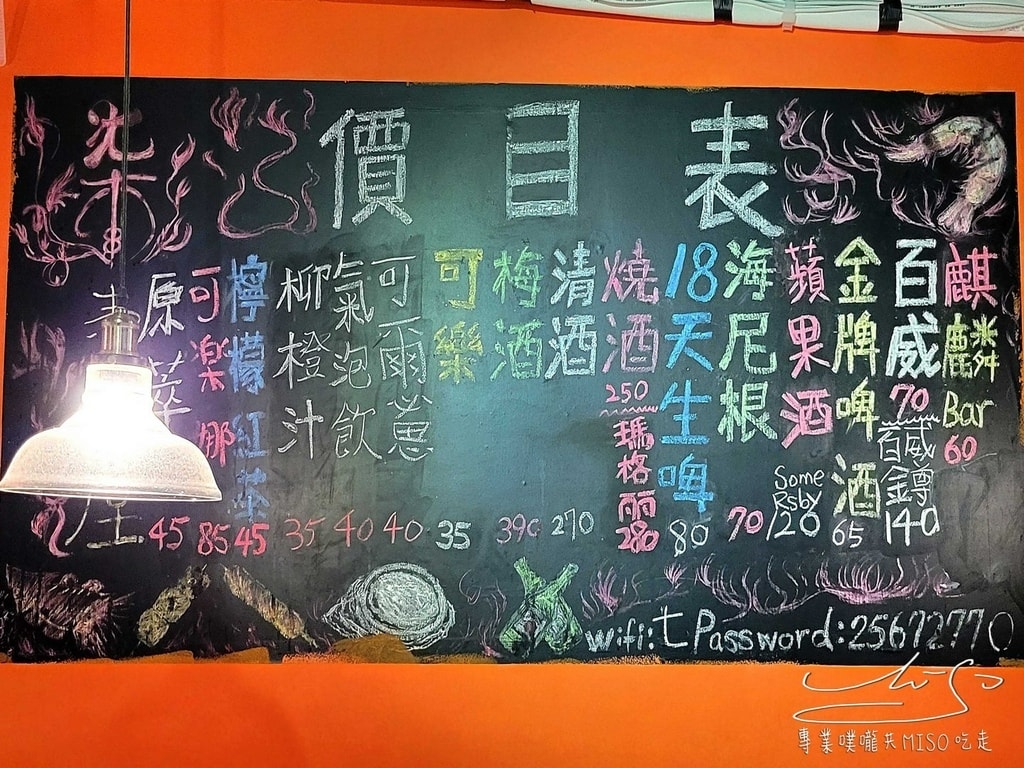 價目表
柒
麒麟Bar 60
百威 70
百威鐏 140
金牌啤酒 65
蘋果酒 Some Rsby 120
海尼根 70
18天生啤 80
燒酒 250
瑪格丽 280
清酒 270
梅酒 390
可樂 35
可爾必思 40
氣泡飲 40
柳橙汁 35
檸檬紅茶 45
可楽娜 85
原萃 45
wifi:七 Password:25672770
專業噗嚨共MISO吃走